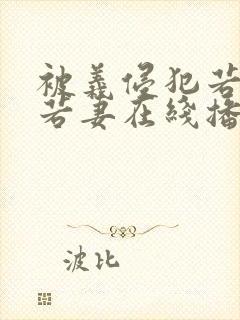 被義侵犯若
若妻在綫播
波比